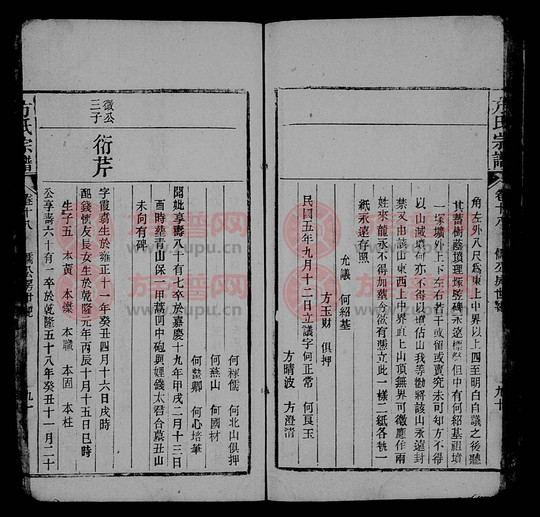 方氏宗譜
卷十八
九十
角左外八尺爲東上中界以上四至明白自議之後聽
其蓄樹蔭墳理塚監碑永遠標祭但中有何紹基祖培
一塚墳外上下左右若干或留或賣究未可知方不得
以山減墳何亦不得以墳佔山我等勸將該山永遠封
禁又由該山東西上中界直上山頂無界可徵應作兩
姓來龍永不得加葬今欲有憑立此一樣二紙各執一
紙永遠存照
允議 何紹基
方玉財 俱押
民國五年九月十二日立議字何正常 何良玉
方晴波 方澄清
何祿儒 何北山俱押
何燕山 何國材
何瑩卿 何心培筆
閣妣享壽八十有七卒於嘉慶十九年甲戌二月十三日
酉時葬青山保二甲萬
中砲與姪錢太君合墓丑山
未向有碑
徵公三子
衍芹
字霞春生於雍正十一年癸丑四月十六日戌時
配錢懷友長女生於乾隆元年丙辰十月十五日巳時
生子五 本黃 本榮 本職 本固 本柱
公享壽六十有一卒於乾隆五十八年癸丑十一月二十
方氏宗譜
卷十八
九一
族譜网
www.zupu.cn